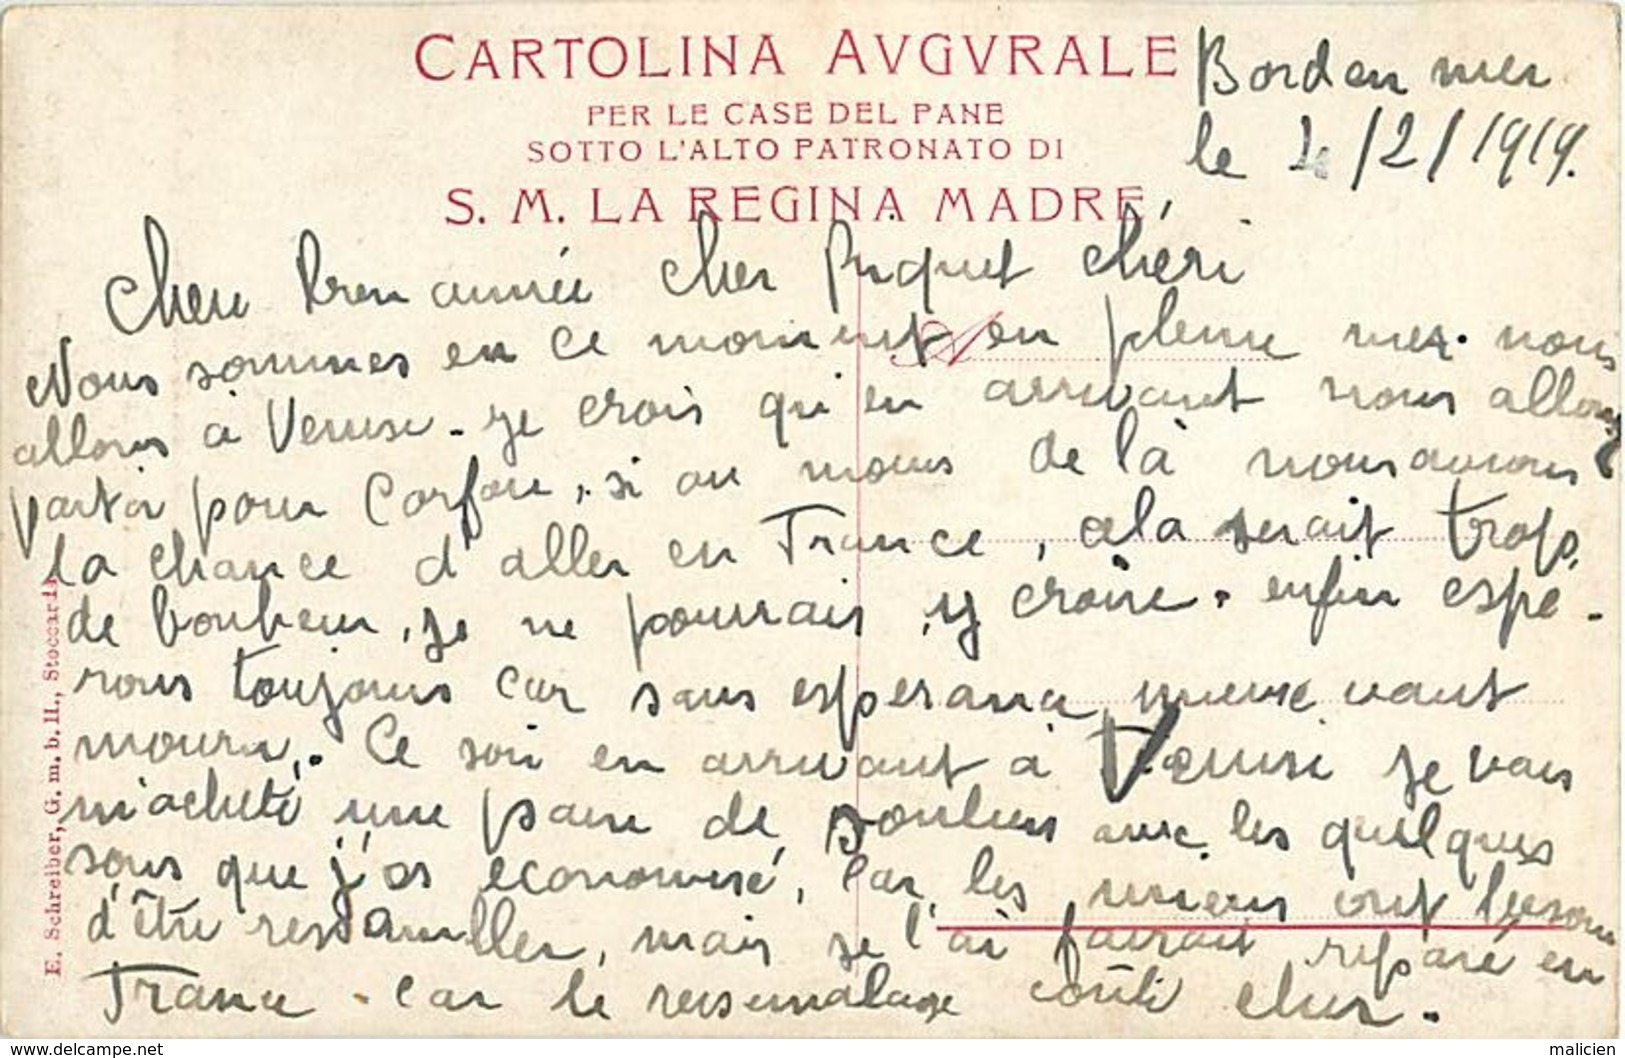 CARTOLINA AVGVRALE
PER LE CASE DEL PANE
SOTTO L'ALTO PATRONATO DI
S. M. LA REGINA MADRE
Bord en mer
le 4/2/1919.
bien aimée cher Piquet chéri
Nous sommes en ce moment en pleine mer. nous
allons à Venise. je crois qu'en arrivant nous allons
partir pour Corfou, si au moins de là nous aurons
la chance d'aller en France, cela serait trop
de bonheur, je ne pourrais y croire. enfin espé-
rons toujours car sans esperance, mieux vaut
mourir. Ce soir en arrivant à Venise je vais
m'acheté une paire de souliers avec les quelques
sous que j'ai economisé, car les miens ont besoin
d'être ressemeller, mais je l'ai fairait réparé en
France. car le ressemelage coûte cher.
E. Schreiber, G. m. b. H., Stoccarda
delcampe.net
malicien